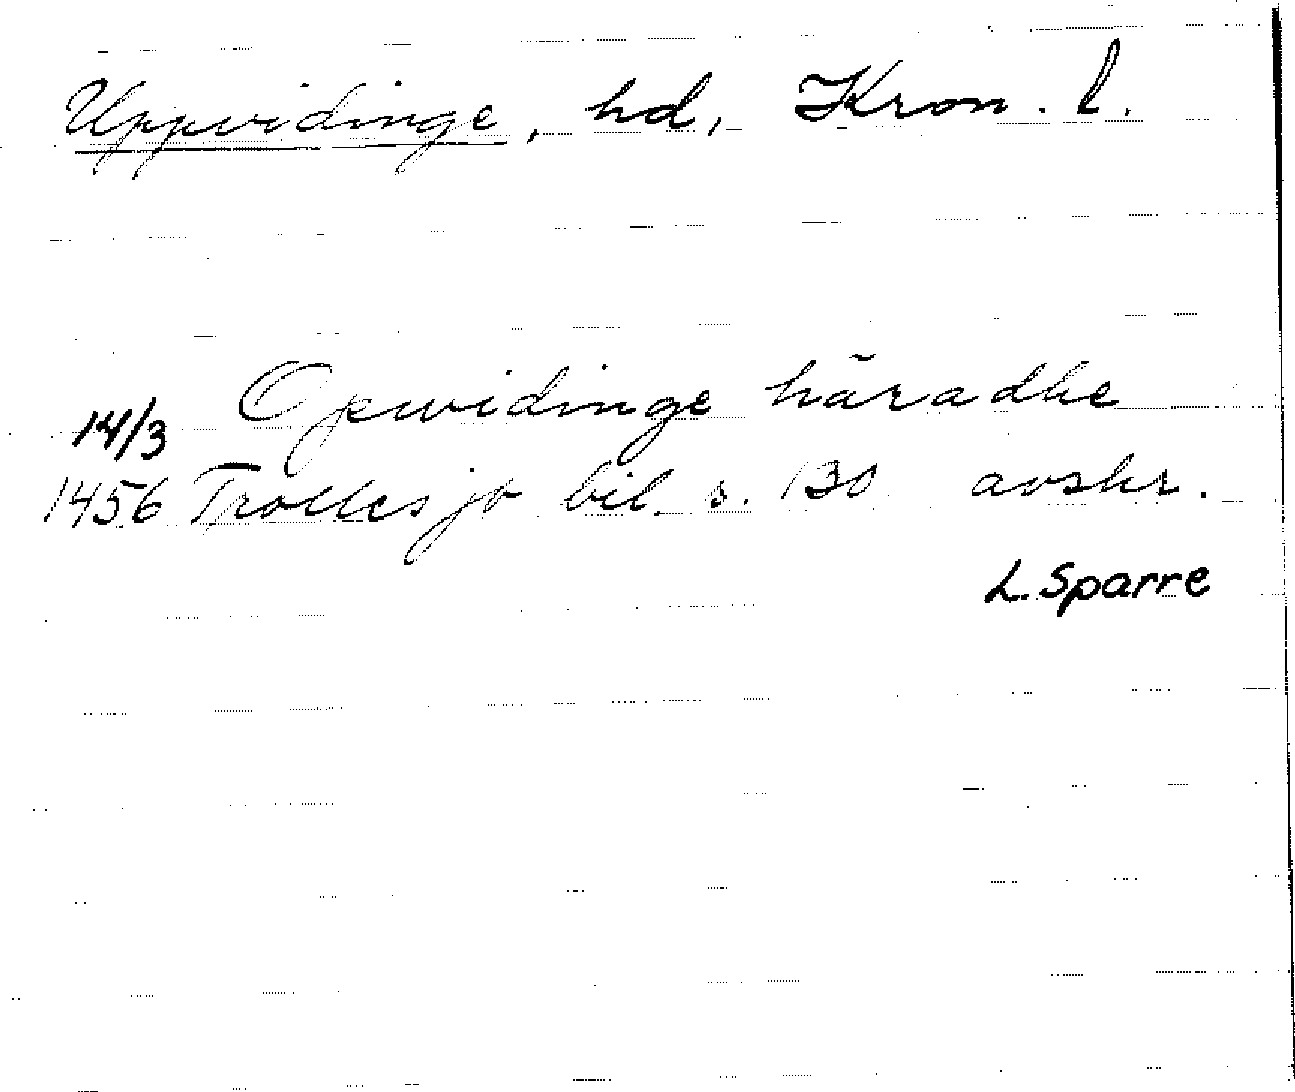 Uppvidinge, hd, Kron. l.
Opwidinge häradhe
14/3
1456 Trolles jb bil. s. 130 avskr.
L. Sparre